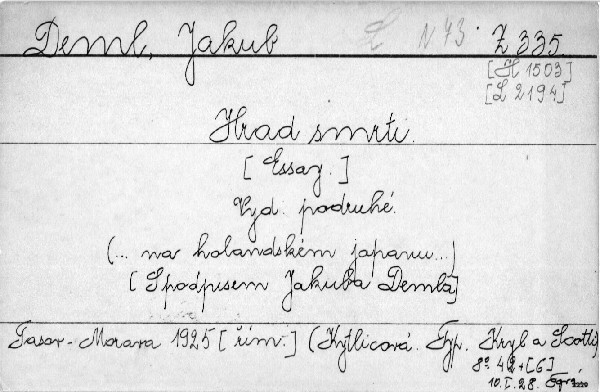 Deml, Jakub Z N 73 Z 335.
[H 1503]
[L 2194]
Hrad smrti.
[Essay.]
Vyd. podruhé.
(... na holandském japanu...)
[S podpisem Jakuba Demla]
Tasov-Morava 1925 [řím.] (Kytlicová. Typ. Kryl a Scotti)
8° 42+[6]
10.I.28.